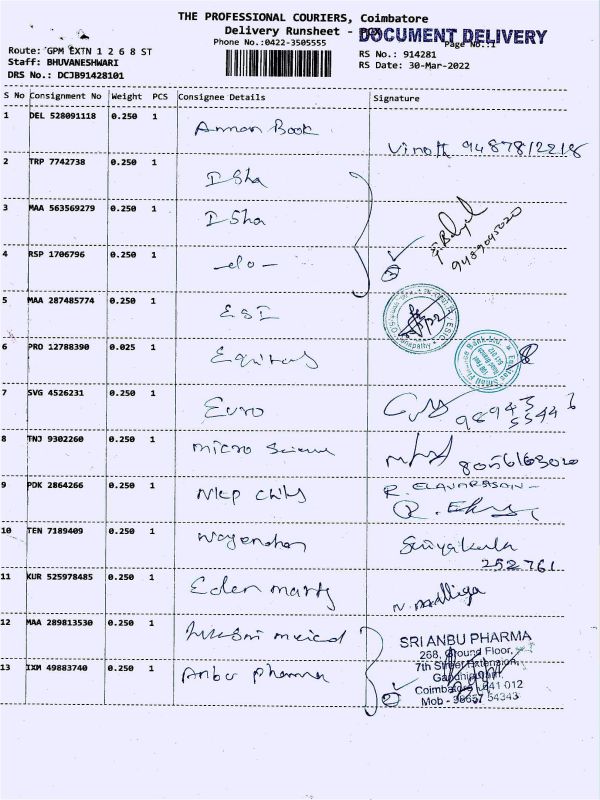 THE PROFESSIONAL COURIERS, Coimbatore
Delivery Runsheet -
DOCUMENT DELIVERY
Phone No.:0422-3505555
Page No.:1
Route: GPM EXTN 1 2 6 8 ST
RS No.: 914281
Staff: BHUVANESHWARI
RS Date: 30-Mar-2022
DRS No.: DCJB91428101
S No Consignment No Weight PCS Consignee Details Signature
1 DEL 528091118 0.250 1 Annan Book Vinoth 9487812218
2 TRP 7742738 0.250 1 ISha
3 MAA 563569279 0.250 1 ISha
9489045020
4 RSP 1706796 0.250 1 -do- 3
5 MAA 287485774 0.250 1 ESI
6 PRO 12788390 0.025 1 Equitas
7 SVG 4526231 0.250 1 Euro 98943 55443
8 TNJ 9302260 0.250 1 micro Science 8056163020
9 PDK 2864266 0.250 1 R. ELAVARASAN
10 TEN 7189409 0.250 1
252761
11 KUR 525978485 0.250 1 N. Malliga
12 MAA 289813530 0.250 1
SRI ANBU PHARMA
268, Ground Floor,
7th Street Extension,
13 IXM 49883740 0.250 1 Anbu pharma
Gandhipuram,
Coimbatore - 641 012
2 Mob - 98657 54343